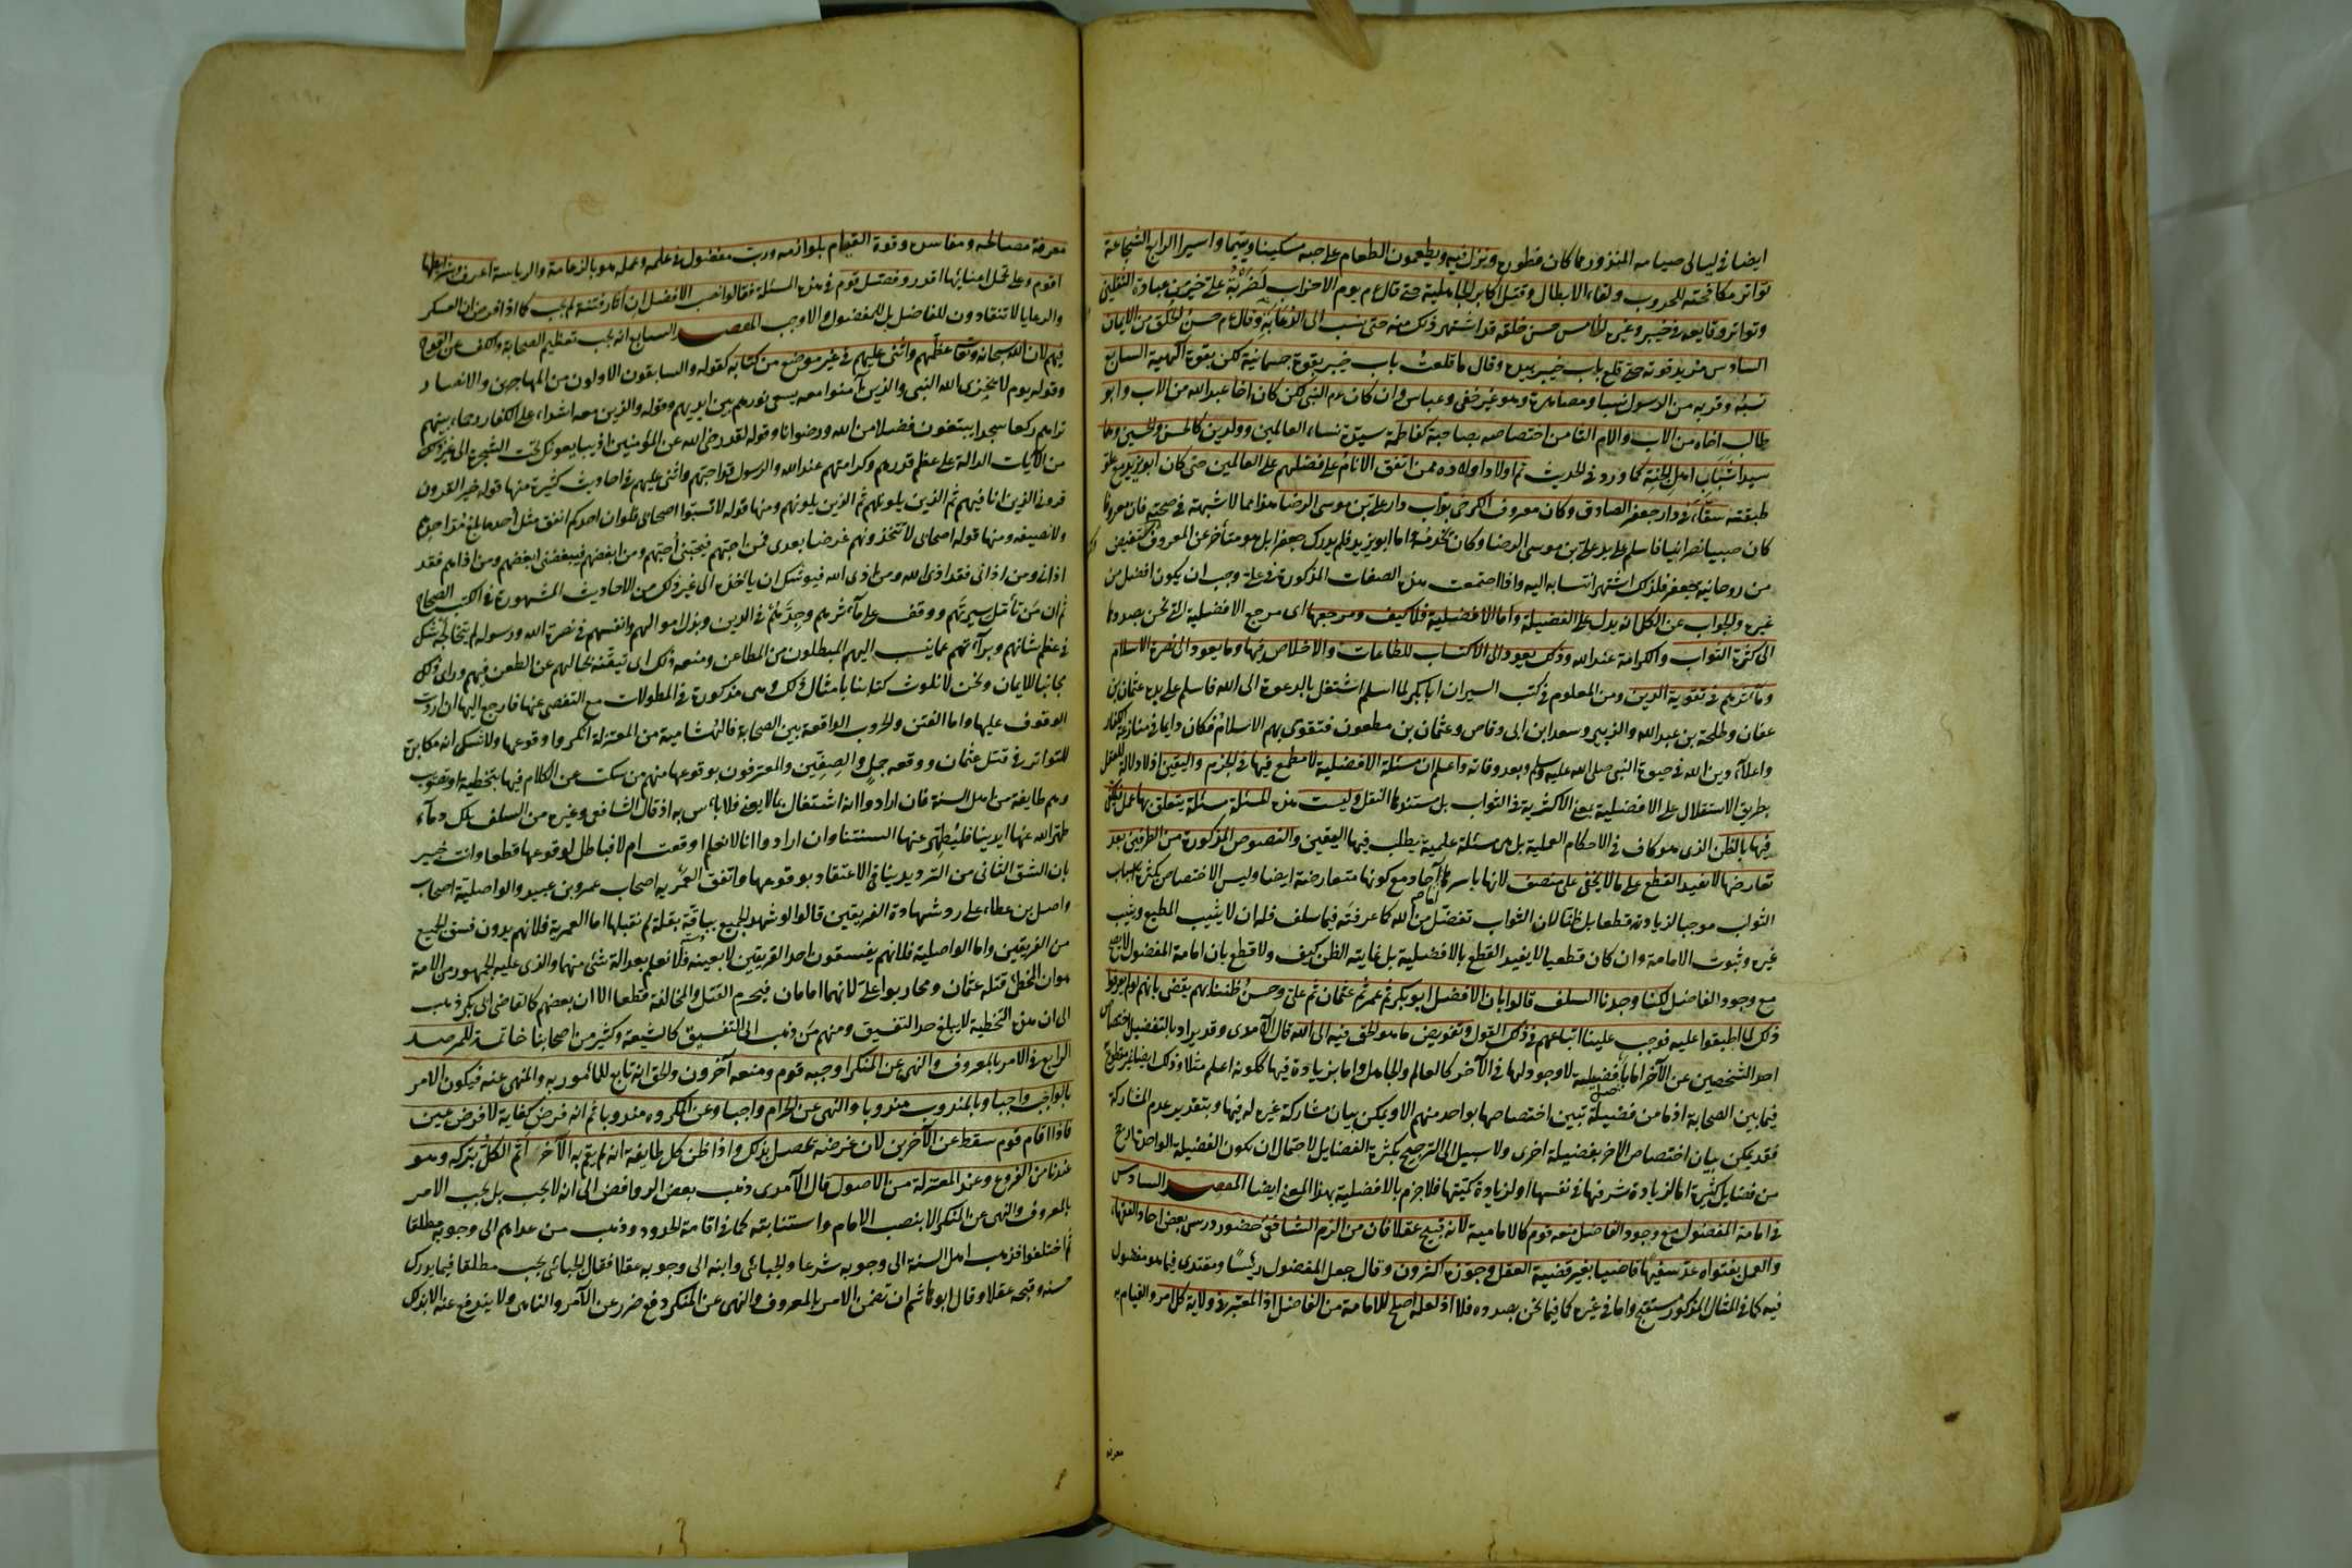 ايضا في ليالي صيامه المنذور بما كان فطوره ونزل فيه ويطعمون الطعام على حبه مسكينا ويتيما واسيرا الرابع الشجاعة
تواتر مكافحته للحروب ولقاء الابطال وقتل اكابر الجاهلية حتى قال عم يوم الاحزاب لضربة علي خير من عبادة الثقلين
وتواتر وقايعه في خيبر وغيره الخامس حسن خلقه قد اشتهر ذلك منه حتى نسب الى الدعابة وقال عم حسن الخلق من الايمان
السادس مزيد قوته حتى قلع باب خيبر بيده وقال ما قلعت باب خيبر بقوة جسمانية لكن بقوة الهية السابع
نسبه وقربه من الرسول نسبا ومصاهرة وهو غير خفي وعباس وان كان عم النبي لكن كان اخا عبد الله من الاب وابو
طالب اخاه من الاب والام الثامن اختصاصه بصاحبة كفاطمة سيدة نساء العالمين وولدين كالحسن والحسين وهما
سيدا شباب اهل الجنة كما ورد في الحديث ثم اولاد اولاده ممن اتفق الانام على فضلهم على العالمين حتى كان ابو يزيد مع علو
طبقته سقاء في دار جعفر الصادق وكان معروف الكرخي بواب دار علي بن موسى الرضا هذا مما لا شبهة في صحته فان معروفا
كان صبيا نصرانيا فاسلم على يد علي بن موسى الرضا وكان يخدمه واما ابو يزيد فلم يدرك جعفرا بل هو متأخر عن معروف لكنه استفيض
من روحانية جعفر فلذلك اشتهر انتسابه اليه واذا اجتمعت هذه الصفات المذكورة في علي وجب ان يكون افضل من
غيره والجواب عن الكل انه يدل على الفضيلة واما الافضلية فلا كيف ومرجعها اى مرجع الافضلية التي نحن بصددها
الى كثرة الثواب والكرامة عند الله وذلك يعود الى الاكتساب للطاعات والاخلاص فيها وما يعود الى نصرة الاسلام
ومآثرهم في تقوية الدين ومن المعلوم في كتب السير ان ابا بكر لما اسلم اشتغل بالدعوة الى الله فاسلم على يده عثمان بن
عفان وطلحة بن عبد الله والزبير وسعد ابن ابى وقاص وعثمان بن مظعون فتقوى بهم الاسلام وكان دايما في منازعة الكفار
واعلاء دين الله في حيوة النبي صلى الله عليه وسلم وبعد وفاته واعلم ان مسئلة الافضلية لا مطمع فيها في الجزم واليقين اذ لا دلالة للعقل
بطريق الاستقلال على الافضلية بمعنى الاكثرية في الثواب بل مستندها النقل وليست هذه المسئلة مسئلة يتعلق بها عمل فيكتفى
فيها بالظن الذى هو كاف في الاحكام العملية بل هي مسئلة علمية يطلب فيها اليقين والنصوص المذكورة من الطرفين بعد
تعارضها لا تفيد القطع على ما لا يخفى على منصف لانها باسرها آحاد مع كونها متعارضة ايضا وليس الاختصاص بكثرة اسباب
الثواب موجبا لزيادته قطعا بل ظنا لان الثواب تفضل من الله كما عرفته فيما سلف فله ان لا يثيب المطيع ويثيب
غيره وثبوت الامامة وان كان قطعيا لا يفيد القطع بالافضلية بل غايته الظن كيف ولا قطع بان امامة المفضول لا تصح
مع وجود الفاضل لكنا وجدنا السلف قالوا بان الافضل ابو بكر ثم عمر ثم عثمان ثم علي وحسن ظننا بهم يقضى بانهم لو لم يعرفوا
ذلك لما اطبقوا عليه فوجب علينا اتباعهم في ذلك القول وتفويض ما هو الحق فيه الى الله قال الآمدى وقد يراد بالتفضيل اختصاص
احد الشخصين عن الآخر اما باصل فضيلة لا وجود لها في الآخر كالعالم والجاهل واما بزيادة فيها ككونه اعلم مثلا وذلك ايضا غير مقطوع
فيما بين الصحابة اذ ما من فضيلة تبين اختصاصها بواحد منهم الا ويمكن بيان مشاركة غيره له فيها وبتقدير عدم المشاركة
فقد يمكن بيان اختصاص الاخر بفضيلة اخرى ولا سبيل الى الترجيح بكثرة الفضايل لاحتمال ان يكون الفضيلة الواحدة ارجح
من فضايل كثيرة اما لزيادة شرفها في نفسها او لزيادة كميتها فلا جزم بالافضلية بهذا المعنى ايضا المقصد السادس
في امامة المفضول مع وجود الفاضل منعه قوم كالامامية لانه قبيح عقلا فان من الزم الشافعي حضور درس بعض احاد الفقهاء
والعمل بفتواه عد سفيها قاضيا بغير قضية العقل وجوزه اكثرون وقال جعل المفضول رئيسا ومقتدى فيما هو مفضول
فيه كما في المثال المذكور مستقبح واما في غيره كما فيما نحن بصدده فلا اذ لعله اصلح للامامة من الفاضل اذ المعتبر في ولاية كل امر والقيام به
معرفة
معرفة مصالحه ومفاسده وقوة القيام بلوازمه ورب مفضول في علمه وعمله هو بالزعامة والرياسة اعرف وبشرايطها
اقوم وعلى تحمل اعبائها اقدر وفصل قوم في هذه المسئلة فقالوا نصب الافضل ان اثار فتنة لم يجب كما اذا فرض ان العسكر
والرعايا لا تنقادون للفاضل بل للمفضول والا وجب المقصد السابع انه يجب تعظيم الصحابة والكف عن القدح
فيهم لان الله سبحانه وتعا عظمهم واثنى عليهم في غير موضع من كتابه كقوله والسابقون الاولون من المهاجرين والانصار
وقوله يوم لا يخزى الله النبى والذين آمنوا معه يسعى نورهم بين ايديهم وقوله والذين معه اشداء على الكفار رحماء بينهم
تراهم ركعا سجدا يبتغون فضلا من الله ورضوانا وقوله لقد رضى الله عن المؤمنين اذ يبايعونك تحت الشجرة الى غير ذلك
من الآيات الدالة على عظم قدرهم وكرامتهم عند الله والرسول قد احبهم واثنى عليهم في احاديث كثيرة منها قوله خير القرون
قرني الذين انا فيهم ثم الذين يلونهم ثم الذين يلونهم ومنها قوله لا تسبوا اصحابي فلو ان احدكم انفق مثل احد ما بلغ مد احدهم
ولا نصيفه ومنها قوله اصحابى لا تتخذونهم غرضا بعدى فمن احبهم فبحبي احبهم ومن ابغضهم فببغضى ابغضهم ومن اذاهم فقد
اذانى ومن اذانى فقد اذى الله ومن اذى الله فيوشك ان يأخذه الى غير ذلك من الاحاديث المشهورة في الكتب الصحاح
ثم ان من تأمل سيرتهم ووقف على مآثرهم وجدهم في الدين وبذل اموالهم وانفسهم في نصرة الله ورسوله لم يتخالجه شك
في عظم شانهم وبرآءتهم عما ينسب اليهم المبطلون من المطاعن ومنعه ذلك اى تيقنه بحالهم عن الطعن فيهم وراى ذلك
مجانبا للايمان ونحن لا نلوث كتابنا بامثال ذلك وهى مذكورة في المطولات مع التفصي عنها فارجع اليها ان اردت
الوقوف عليها واما الفتن والحروب الواقعة بين الصحابة فالهشامية من المعتزلة انكروا وقوعها ولا شك انه مكابرة
للتواتر في قتل عثمان ووقعه جمل والصفين والمعترفون بوقوعها منهم من سكت عن الكلام فيها بتخطية او تصويب
وهم طايفة من اهل السنة فان ارادوا انه اشتغال بما لا يعنى فلا بأس به اذ قال الشافعى وغيره من السلف تلك دماء
طهر الله عنها ايدينا فليطهر عنها السنتنا وان ارادوا انا لا نعلم اوقعت ام لا فباطل لوقوعها قطعا وانت خبير
بان الشق الثانى من الترديد ينافي الاعتقاد بوقوعها واتفق العمرية اصحاب عمرو بن عبيد والواصلية اصحاب
واصل بن عطاء على رد شهادة الفريقين قالوا لو شهد الجميع بباقة بقلة لم نقبلها اما العمرية فلانهم يرون فسق الجميع
من الفريقين واما الواصلية فلانهم يفسقون احد الفريقين لا بعينه فلا نعلم عدالة شئ منهما والذى عليه الجمهور من الامة
هو ان المخطئ قتلة عثمان ومحاربوا على لانهما امامان فيحرم القتل والمخالفة قطعا الا ان بعضهم كالقاضى ابى بكر ذهب
الى ان هذه التخطية لا يبلغ حد التفسيق ومنهم من ذهب الى التفسيق كالشيعة وكثير من اصحابنا خاتمة للمرصد
الرابع في الامر بالمعروف والنهى عن المنكر اوجبه قوم ومنعه آخرون والحق انه تابع للمأمور به والمنهى عنه فيكون الامر
بالواجب واجبا وبالمندوب مندوبا والنهى عن الحرام واجبا وعن المكروه مندوبا ثم انه فرض كفاية لا فرض عين
فاذا قام قوم سقط عن الآخرين لان غرضه يحصل بذلك واذا ظن كل طايفة انه لم يقم به الآخر اثم الكل بتركه وهو
عندنا من الفروع وعند المعتزلة من الاصول قال الآمدى ذهب بعض الروافض الى انه لا يجب بل يجب الامر
بالمعروف والنهى عن المنكر الا بنصب الامام واستنابته كما في اقامة الحدود وذهب من عداهم الى وجوبه مطلقا
ثم اختلفوا فذهب اهل السنة الى وجوبه شرعا والجبائى وابنه الى وجوبه عقلا فقال الجبائى يجب مطلقا فيما يدرك
حسنه وقبحه عقلا وقال ابو هاشم ان تضمن الامر بالمعروف والنهى عن المنكر دفع ضرر عن الآمر والناهى ولا يندفع عنه الا بذلك